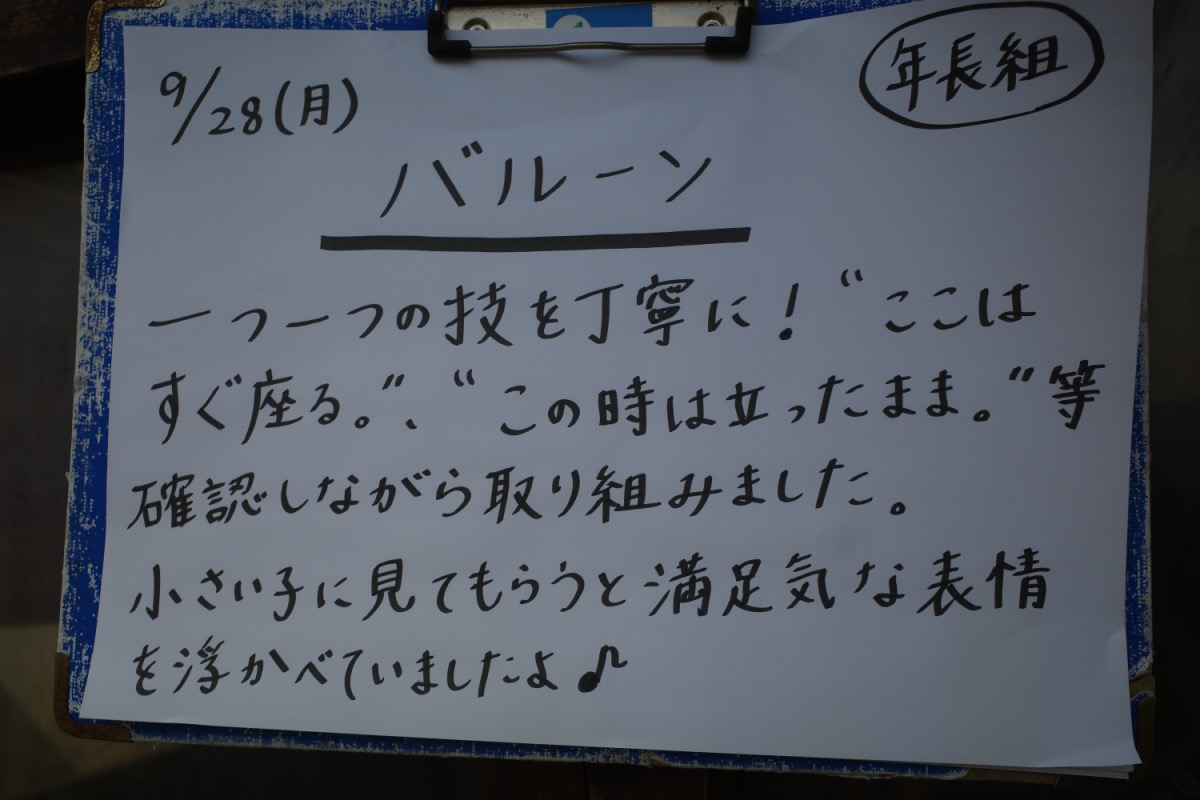 9/28(月)
年長組
バルーン
一つ一つの技を丁寧に!“ここは
すぐ座る。”、“この時は立ったまま。”等
確認しながら取り組みました。
小さい子に見てもらうと満足気な表情
を浮かべていましたよ♪